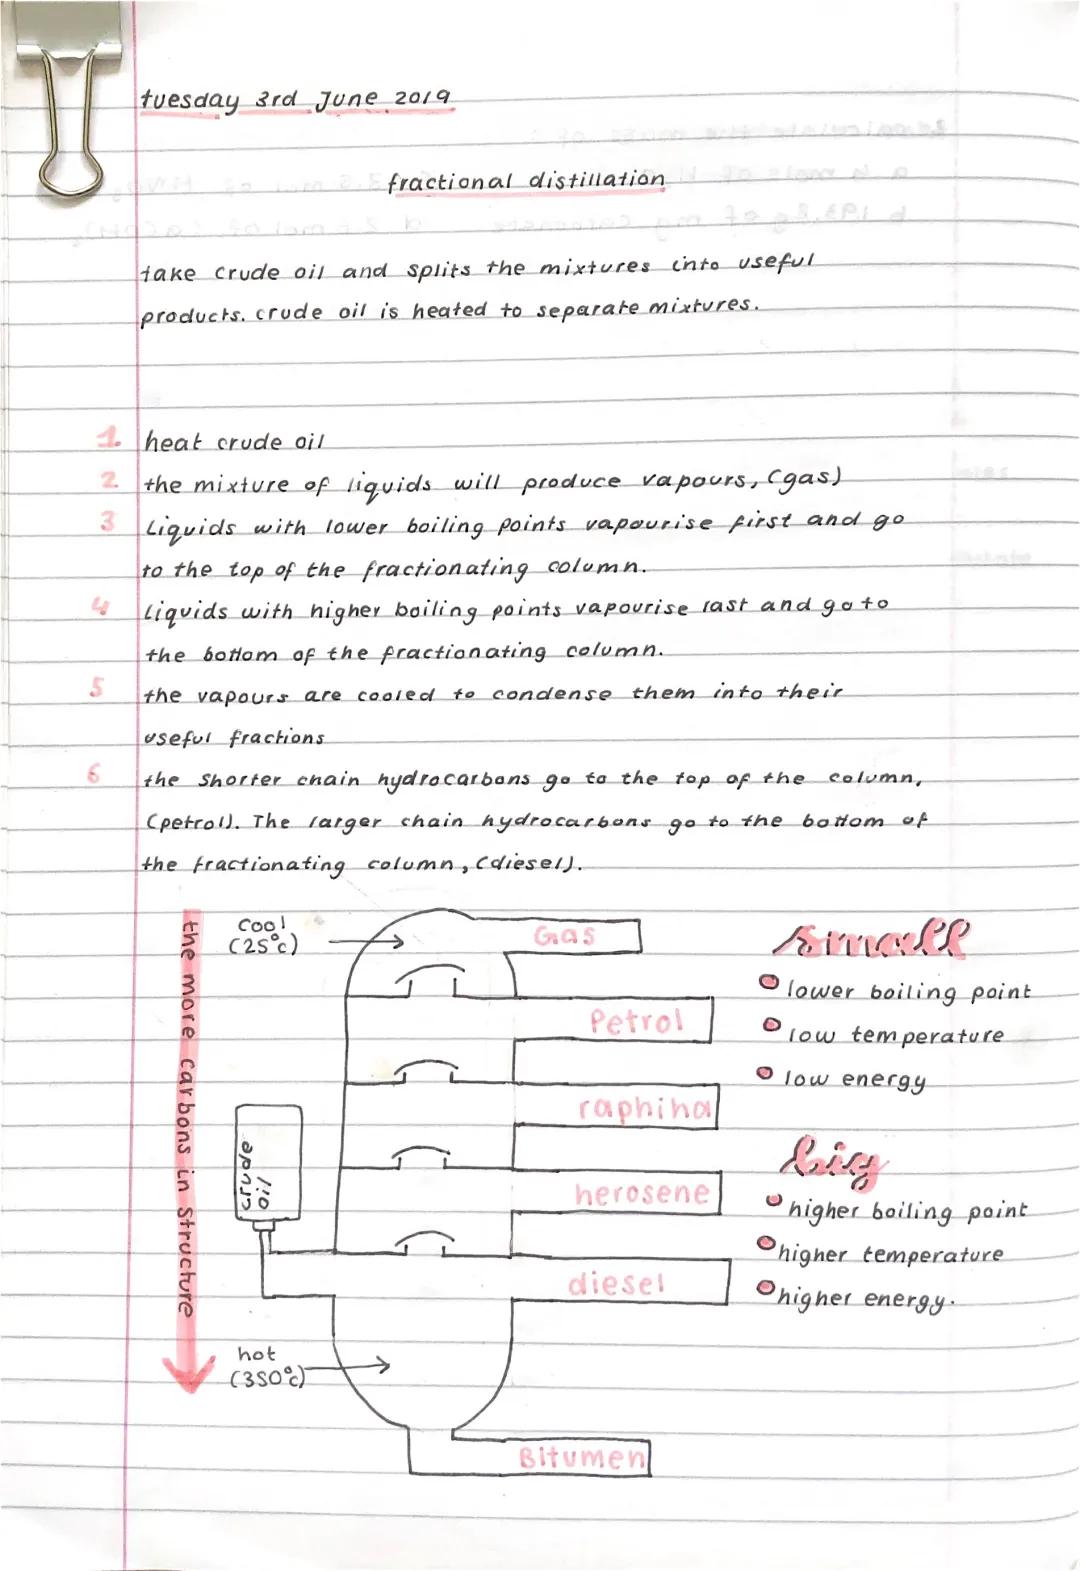 tuesday 3rd June 2019
fractional distillation
take crude oil and splits the mixtures into useful
products. crude oil is heated to separate mixtures.
1. heat crude oil
2. the mixture of liquids will produce vapours, (gas)
3 Liquids with lower boiling points vapourise first and go
to the top of the fractionating column.
4 Liquids with higher boiling points vapourise last and go to
the bottom of the fractionating column.
5 the vapours are cooled to condense them into their
useful fractions
6 the shorter chain hydrocarbons go to the top of the column,
(petrol). The larger chain hydrocarbons go to the bottom of
the fractionating column, (diesel).
the more carbons in structure
cool
(25°c)
crude
oil
hot
(350°c)
Gas
Petrol
raphiha
herosene
diesel
Bitumen
small
lower boiling point
low temperature
low energy
big
higher boiling point
higher temperature
higher energy.